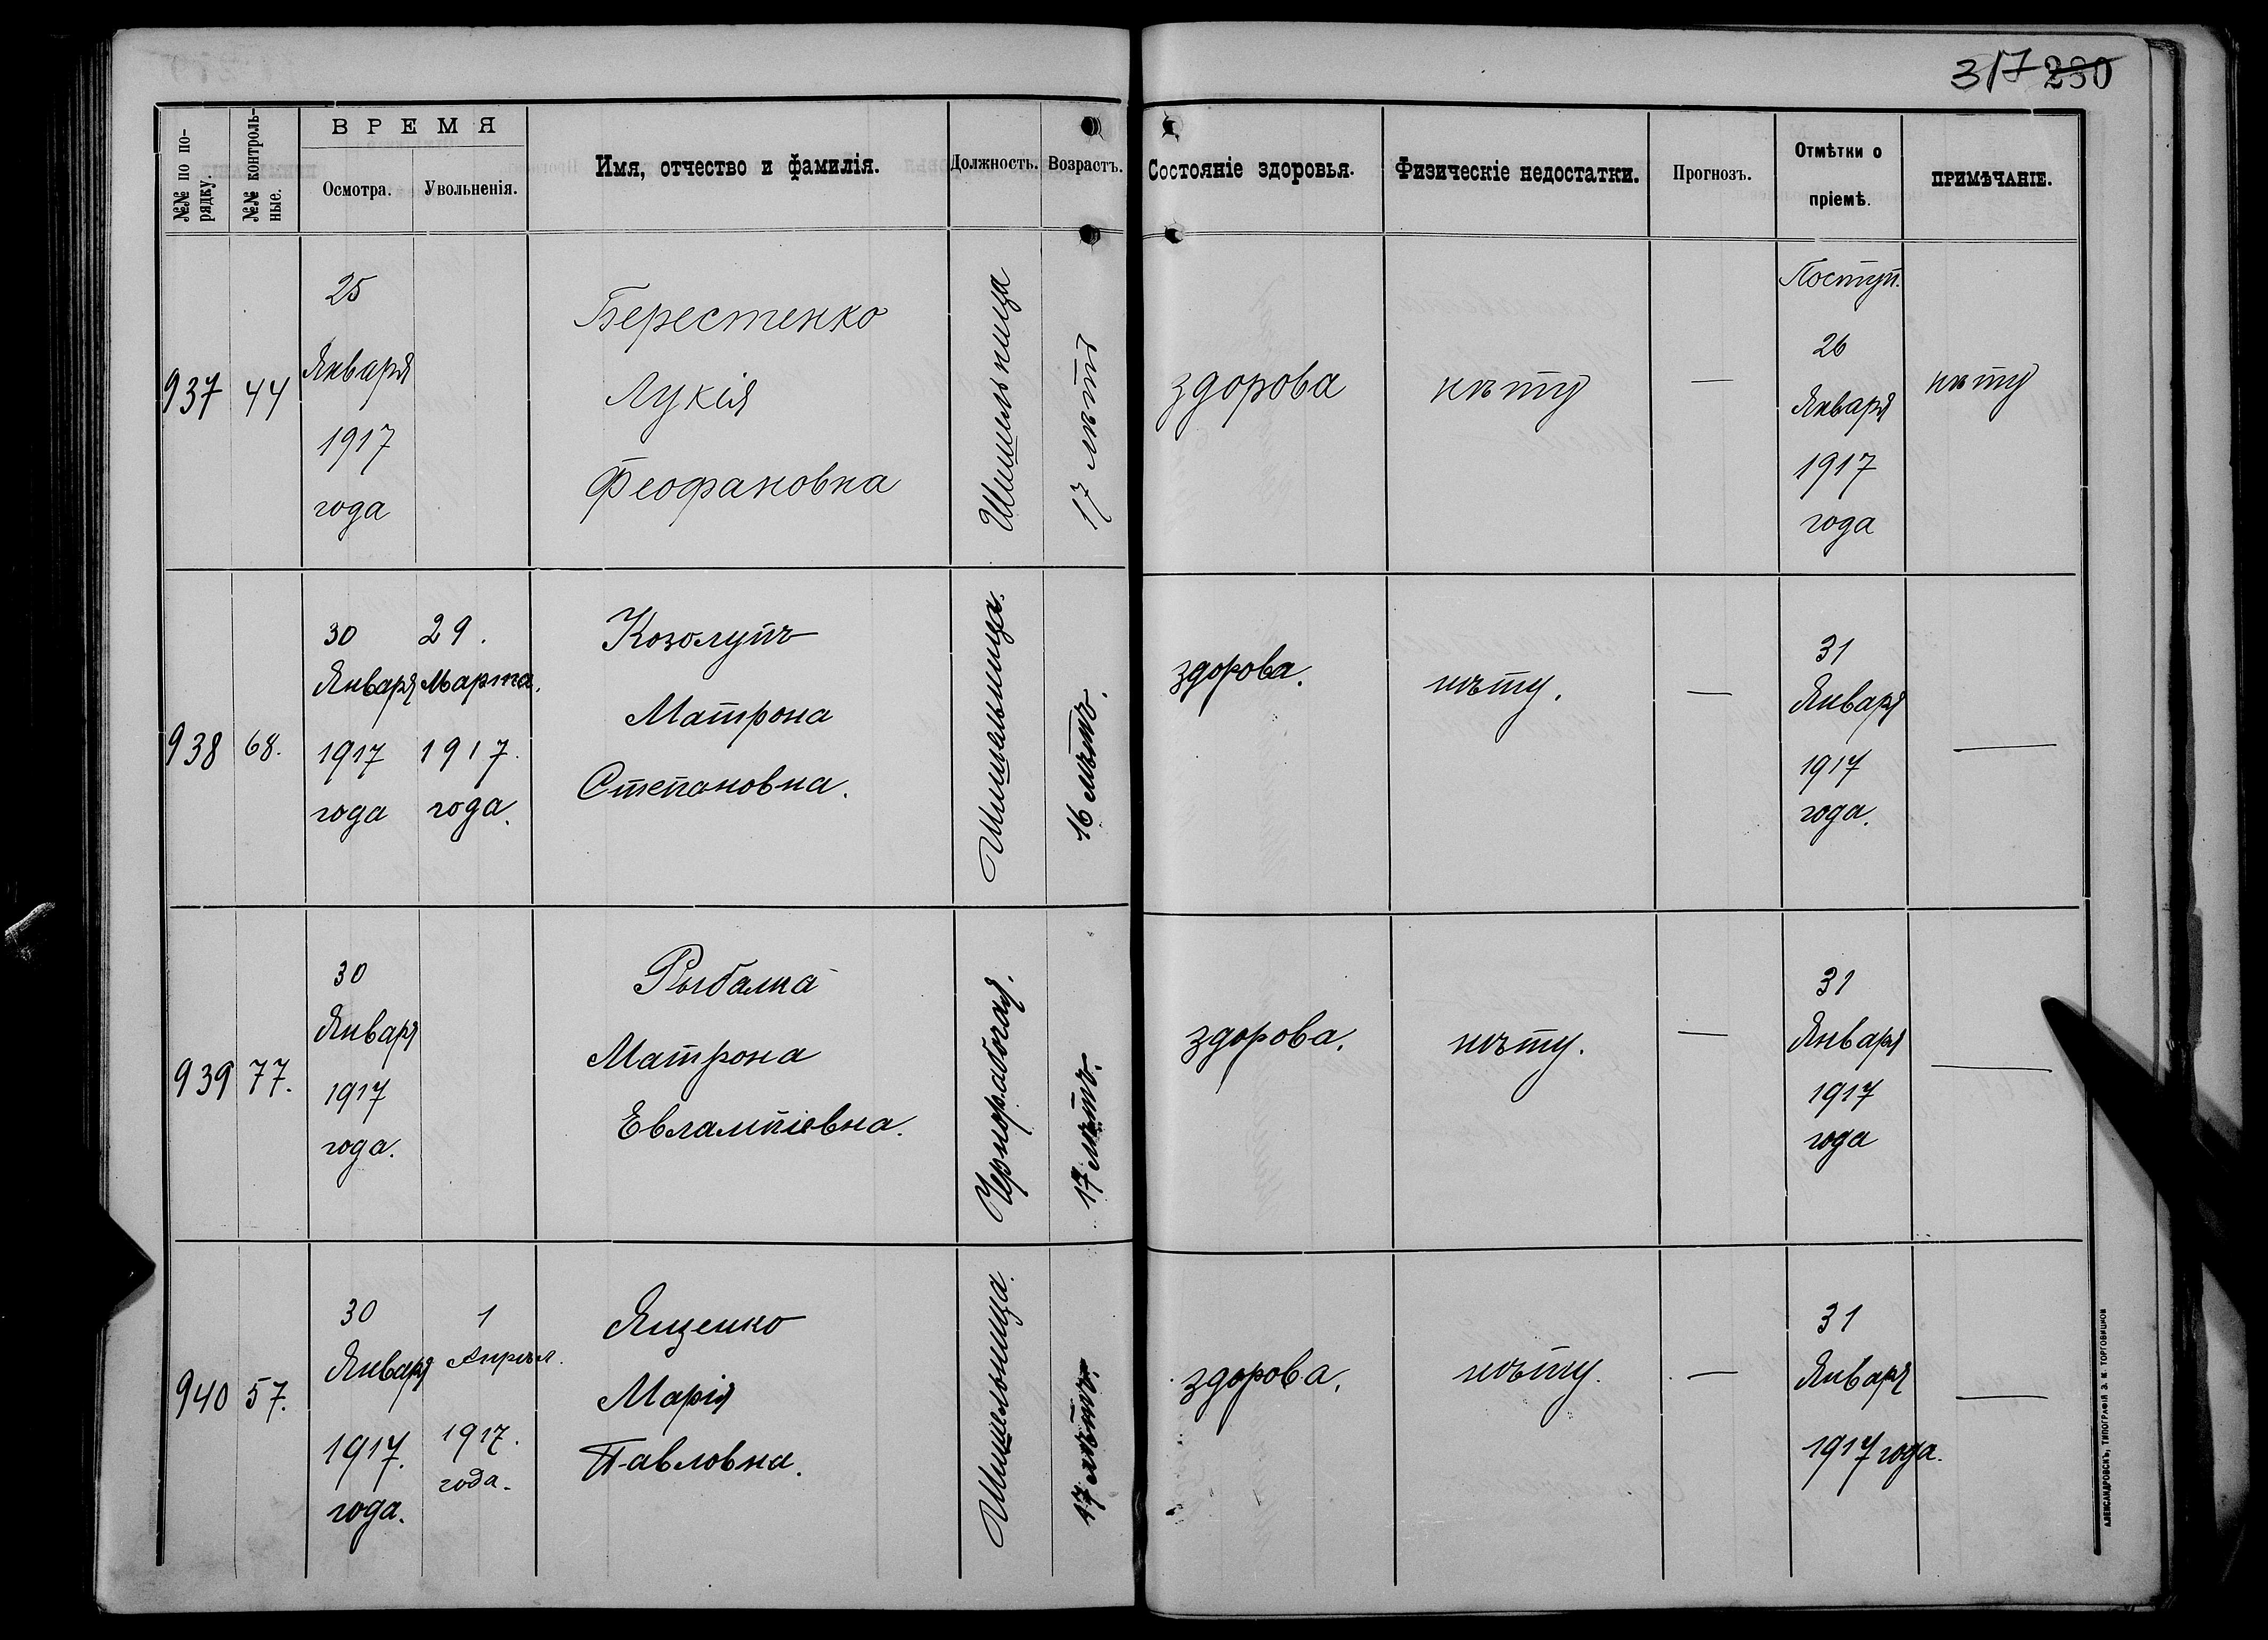 317 280
№№ по по-
рядку.
№№ контроль-
ные.
ВРЕМЯ
Осмотра.
Увольненія.
Имя, отчество и фамилія.
Должность.
Возрастъ.
Состояніе здоровья.
Физическіе недостатки.
Прогнозъ.
Отмѣтки о
пріемѣ.
ПРИМѢЧАНІЕ.
937
44
25
Января
1917
года
Берестенко
Лукія
Феофановна
Шишельница
17 лѣтъ
здорова
нѣту
—
Поступ.
26
Января
1917
года
нѣту
938
68.
30
Января
1917
года
29.
Марта.
1917.
года.
Козолупъ
Матрона
Степановна.
Шишельница.
16 лѣтъ.
здорова.
нѣту.
—
31
Января
1917
года.
—
939
77.
30
Января
1917
года.
Рыбалка
Матрона
Евлампіевна.
Чернорабочая.
17 лѣтъ.
здорова.
нѣту.
—
31
Января
1917
года
—
940
57.
30
Января
1917.
года.
1
Апрѣл.
1917.
года.
Ященко
Марія
Павловна.
Шишельница.
17 лѣтъ.
здорова.
нѣту.
—
31
Января
1917 года.
—
АЛЕКСАНДРОВСКЪ, ТИПОГРАФІЯ З. М. ТОРГОВИЦКОВ